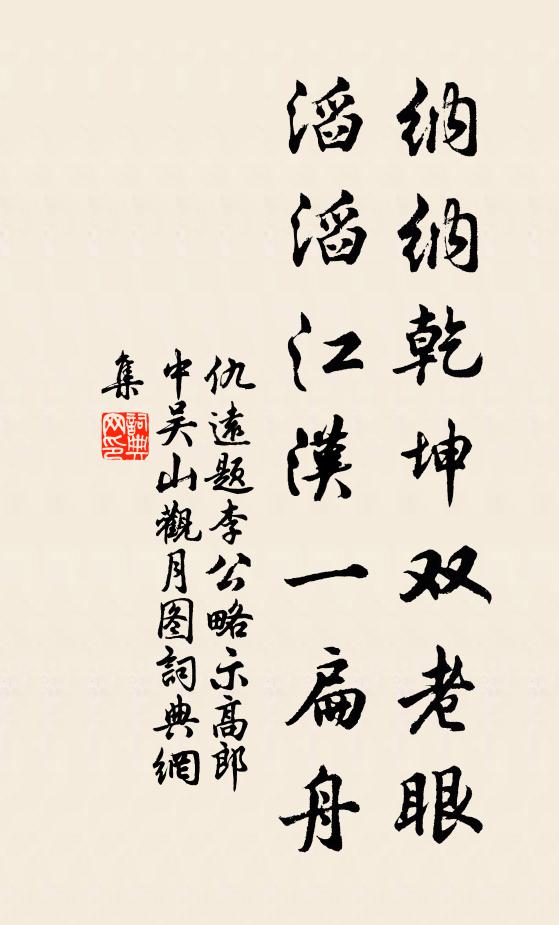 纳纳乾坤双老眼
滔滔江漢一扁舟
仇遠题李公略示高郎
中吴山觀月图詞典網
集
詞典
网印